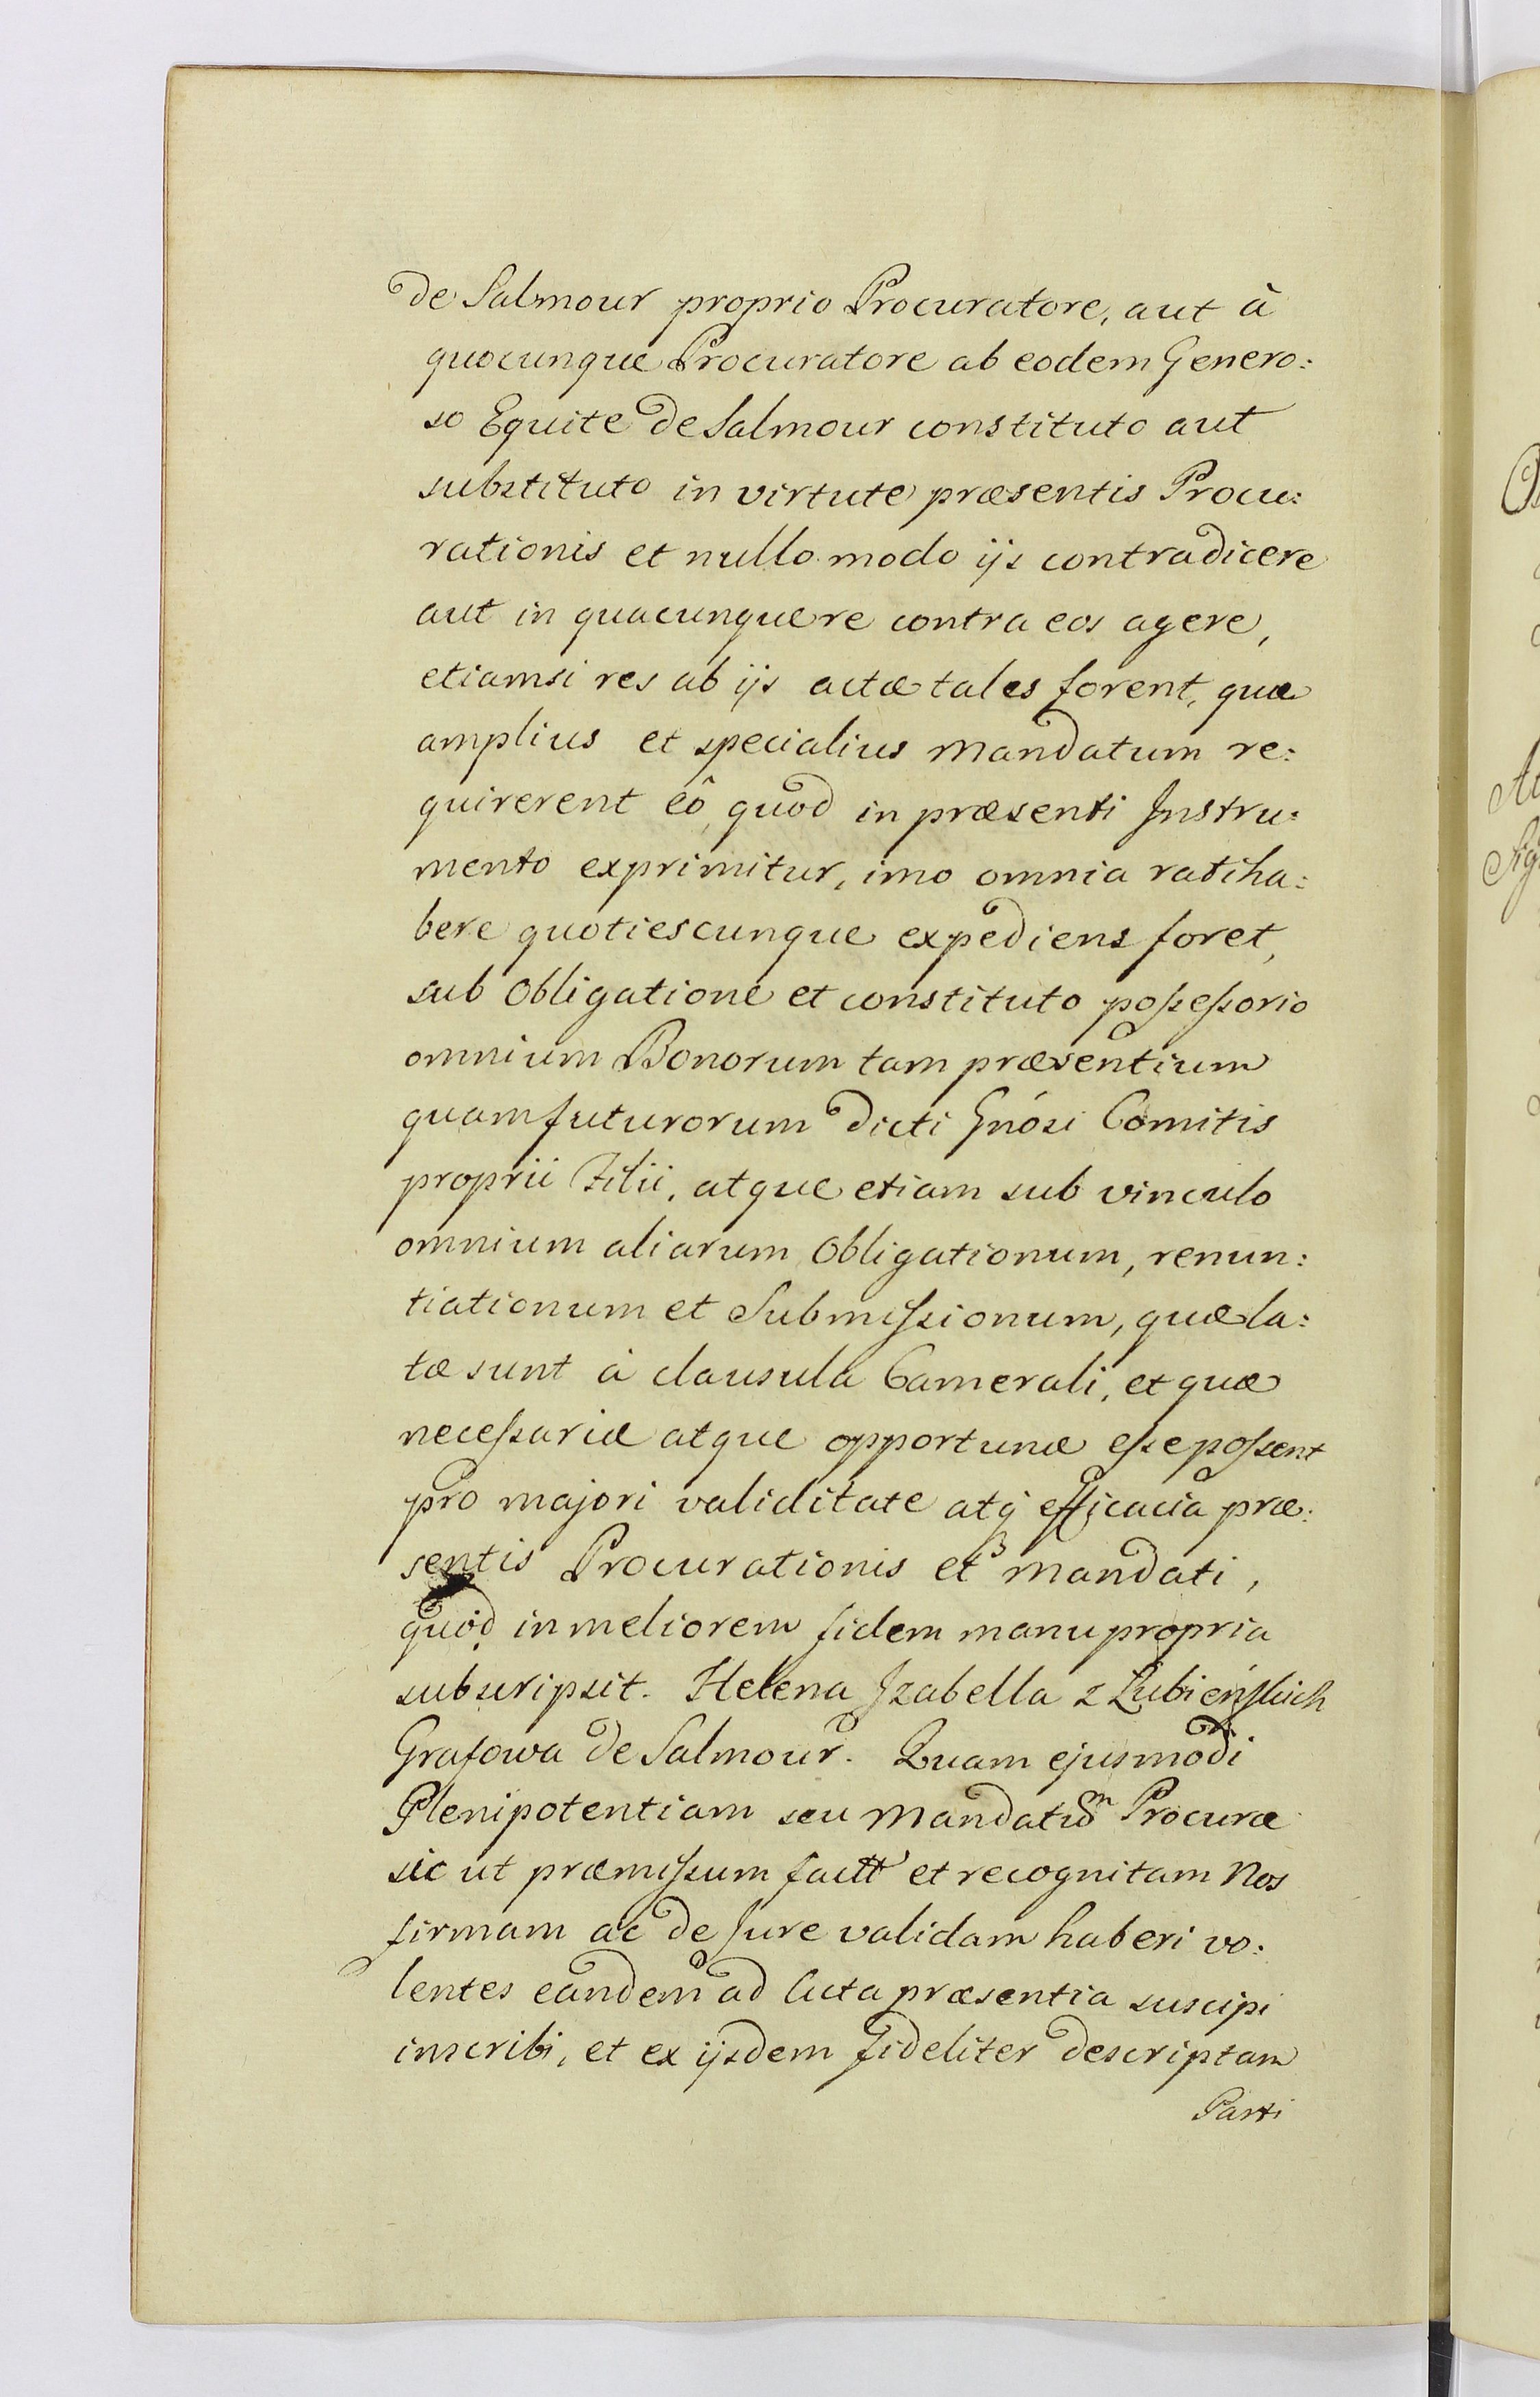 de Salmour proprio Procuratore, aut à
quocunque Procuratore ab eodem Genero:
so Equite de Salmour constituto aut
substituto in virtute præsentis Procu:
rationis et nullo modo ijs contradicere
aut in quacunque re contra eos agere,
etiamsi res ab ijs actæ tales forent, quæ
amplius et specialius Mandatum re:
quirerent eô, quod in præsenti Instru:
mento exprimitur, imo omnia ratiha:
bere quotiescunque expediens foret,
sub Obligatione et constituto possessorio
omnium Bonorum tam præsentium
quam futurorum dicti Gnósi Comitis
proprii Filii, atque etiam sub vinculo
omnium aliarum Obligationum, renun:
tiationum et Submissionum, quæ la:
tæ sunt à clausula Camerali, et quæ
necessariæ atque opportunæ esse possent
pro majori validitate atq̃ efficacia præ:
sentis Procurationis et Mandati,
quod in meliorem fidem manu propria
subscripsit. Helena Izabella z Łubieńskich
Grafowa de Salmour. Quam ejusmodi
Plenipotentiam seu Mandatum Procuræ
sic ut præmissum factt et recognitam Nos
firmam ac de Jure validam haberi vo:
lentes eandem ad Acta præsentia suscipi
inscribi, et ex ijsdem fideliter descriptam
Parti